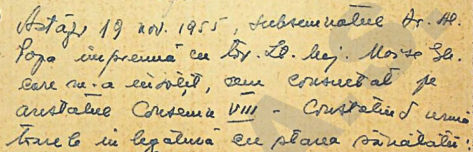 Astăzi 19 nov. 1955, subsemnatul Dr. Al.
Popa împreună cu tov. Lt. Maj. Moise Gh.
care m-a însoțit, am consultat pe
arestatul Consemn VIII - Constatând urmă
toarele în legătură cu starea sănătății.